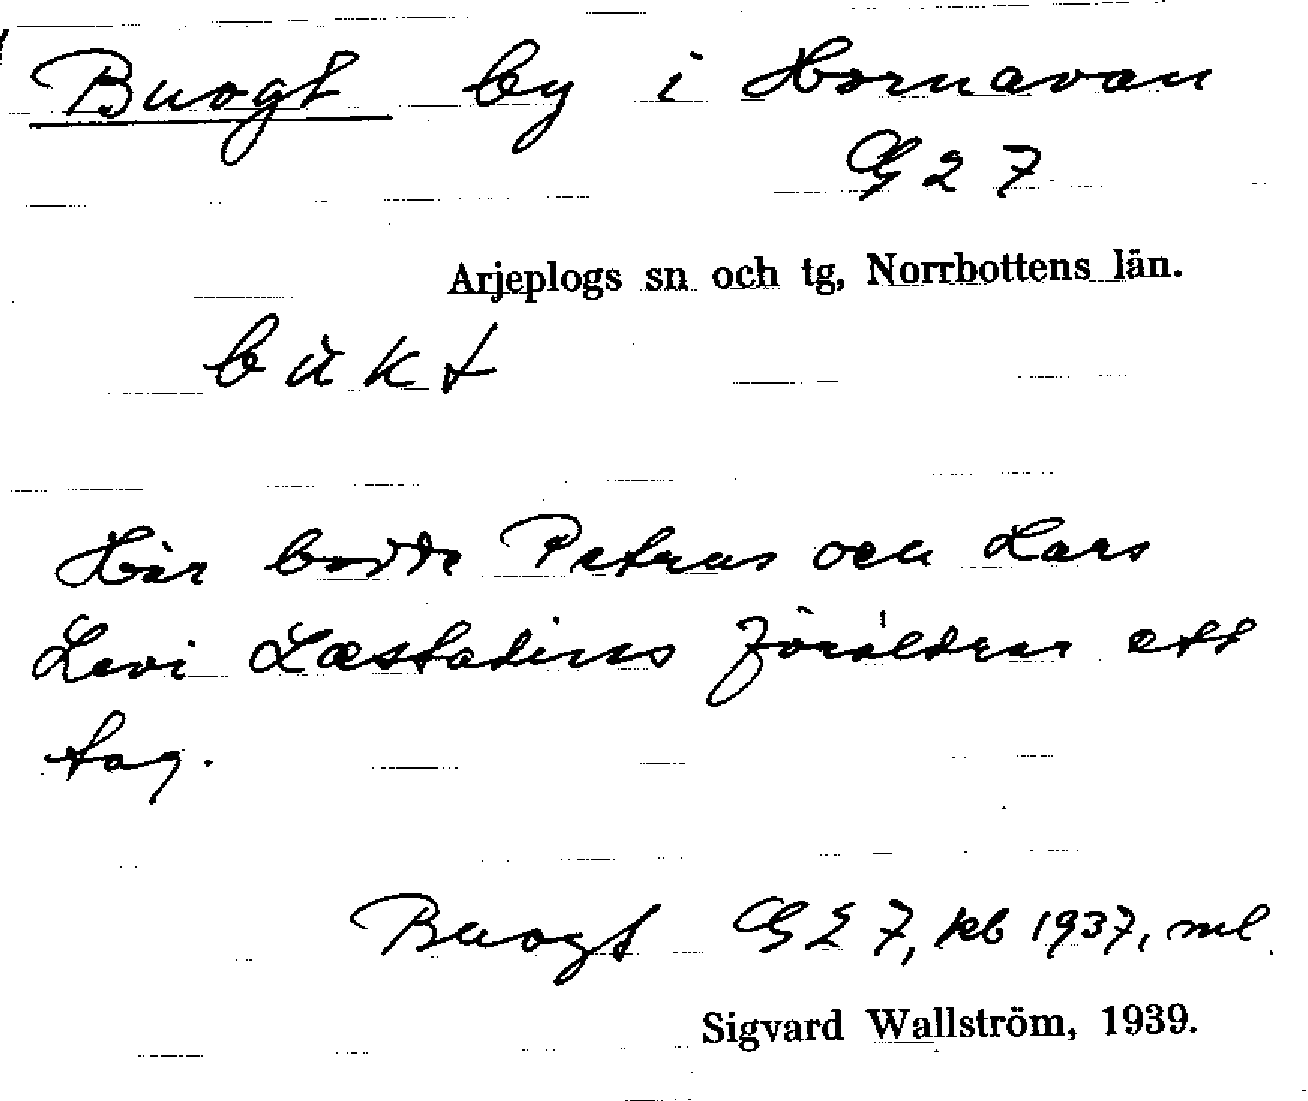 Buogt by i Hornavan
G 27
Arjeplogs sn och tg, Norrbottens län.
bukt
Här bodde Petrus och Lars
Levi Læstadius föräldrar ett
tag.
Buogt G 27, kb 1937, ml.
Sigvard Wallström, 1939.